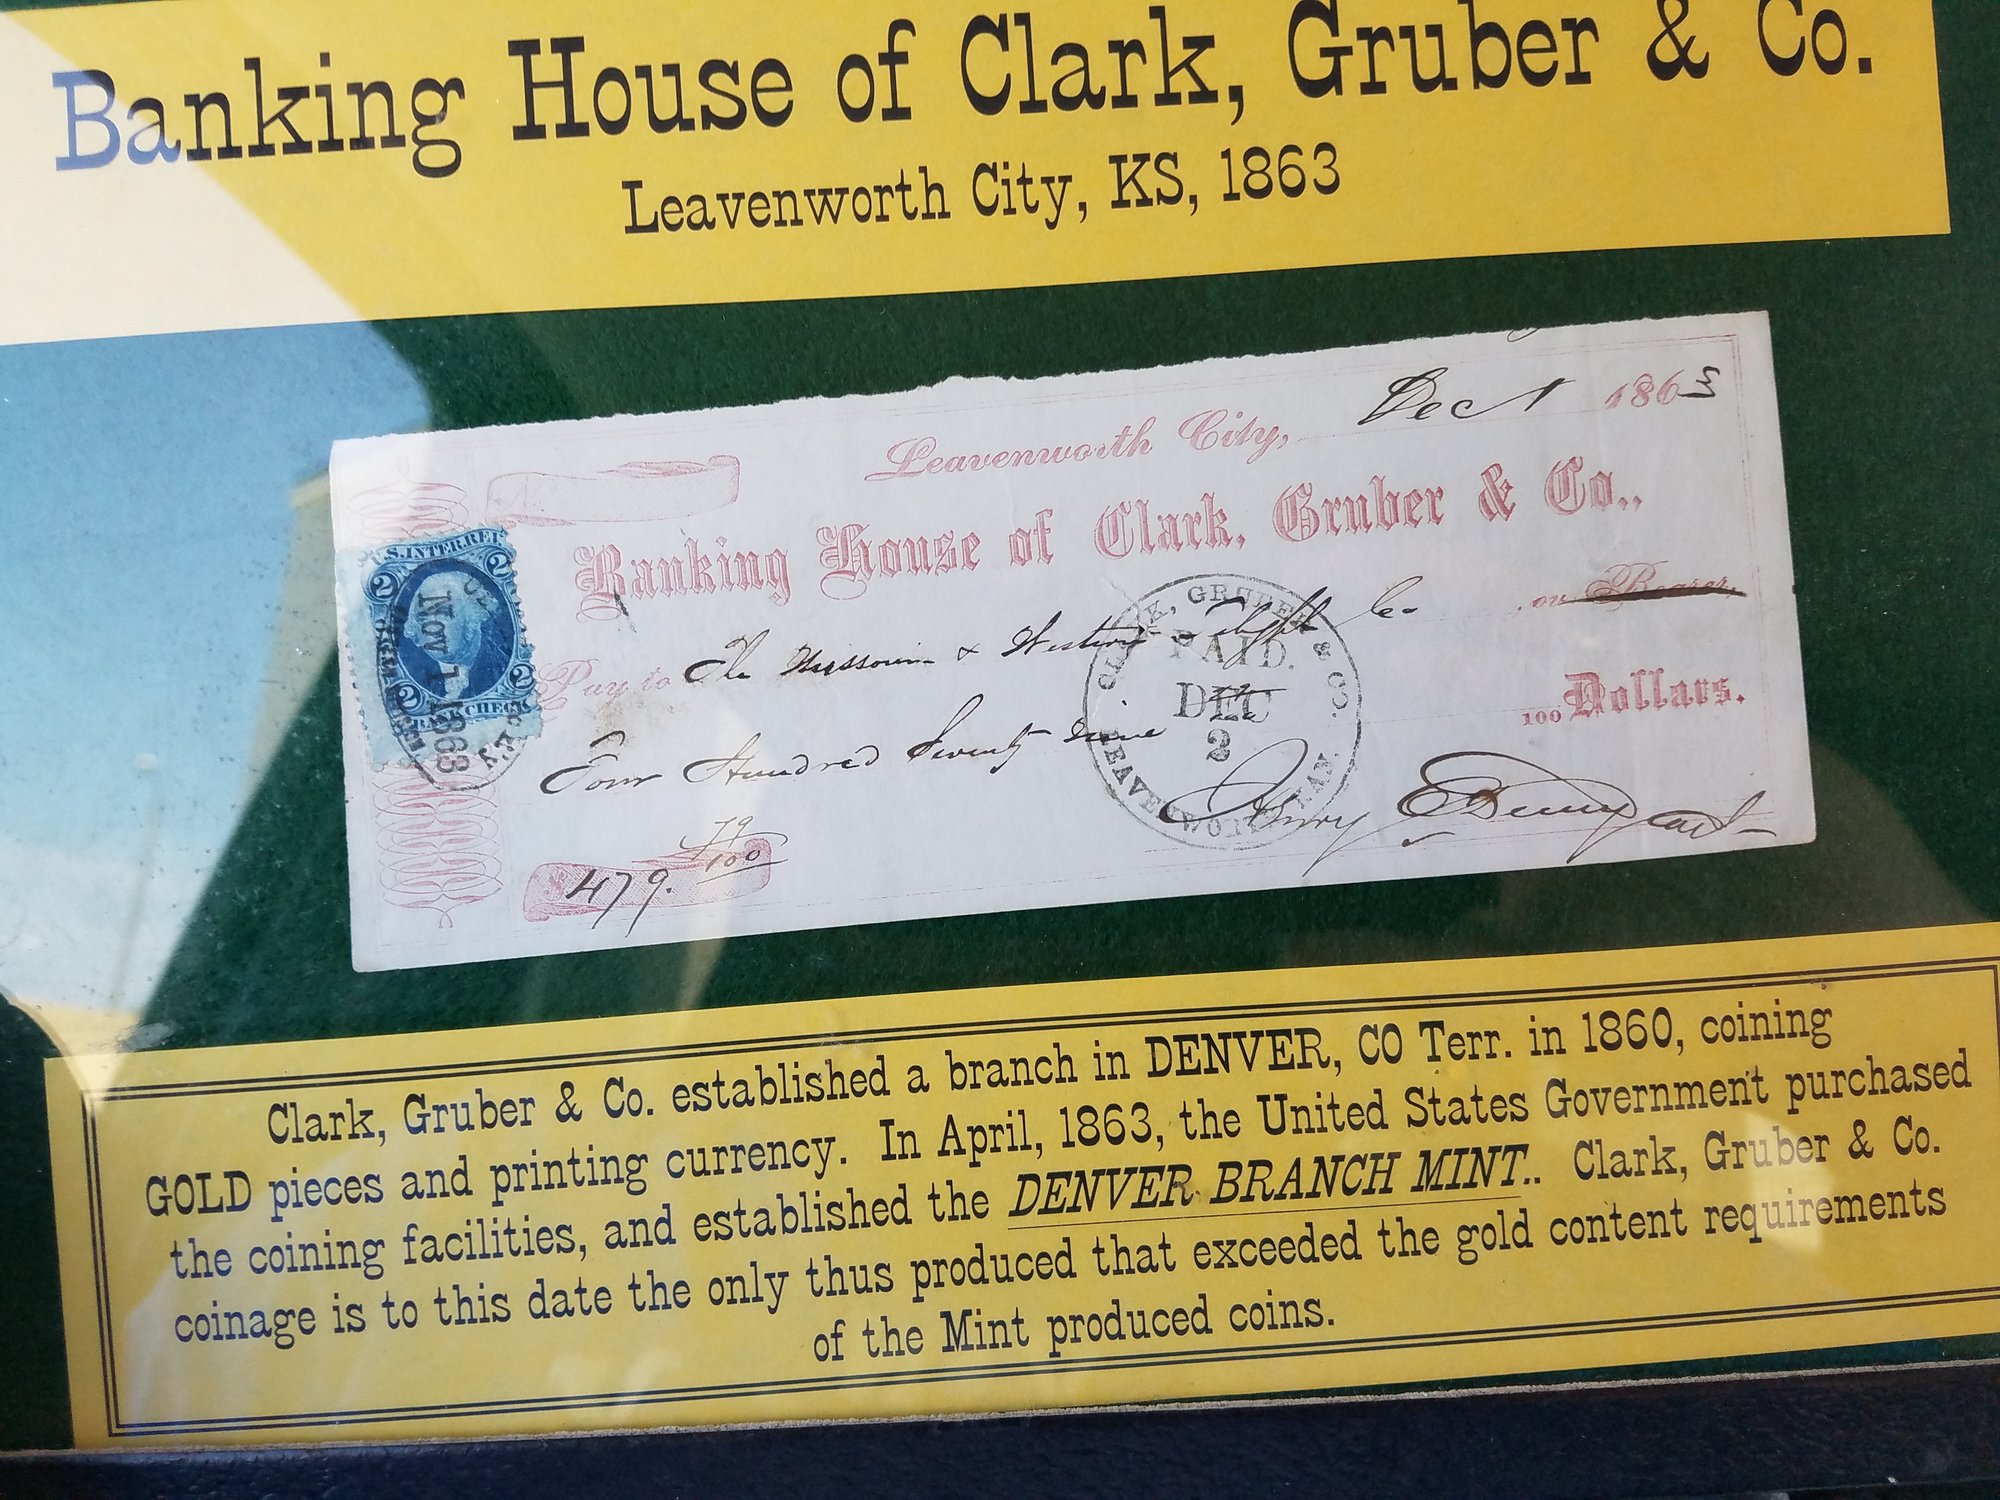 Banking House of Clark, Gruber & Co.
Leavenworth City, KS, 1863
Leavenworth City, Dec 1 1863
Banking House of Clark, Gruber & Co.,
Pay to The Missouri & Western Co or Bearer,
Four Hundred Seventy nine 100 Dollars.
$479. 79/100
Henry
U.S. INTER. REV.
2 2
2 2
BANK CHECK
NOV 1 1863
CLARK, GRUBER & CO.
PAID.
DEC
2
LEAVENWORTH KAN.
Clark, Gruber & Co. established a branch in DENVER, CO Terr. in 1860, coining
GOLD pieces and printing currency. In April, 1863, the United States Government purchased
the coining facilities, and established the DENVER BRANCH MINT.. Clark, Gruber & Co.
coinage is to this date the only thus produced that exceeded the gold content requirements
of the Mint produced coins.